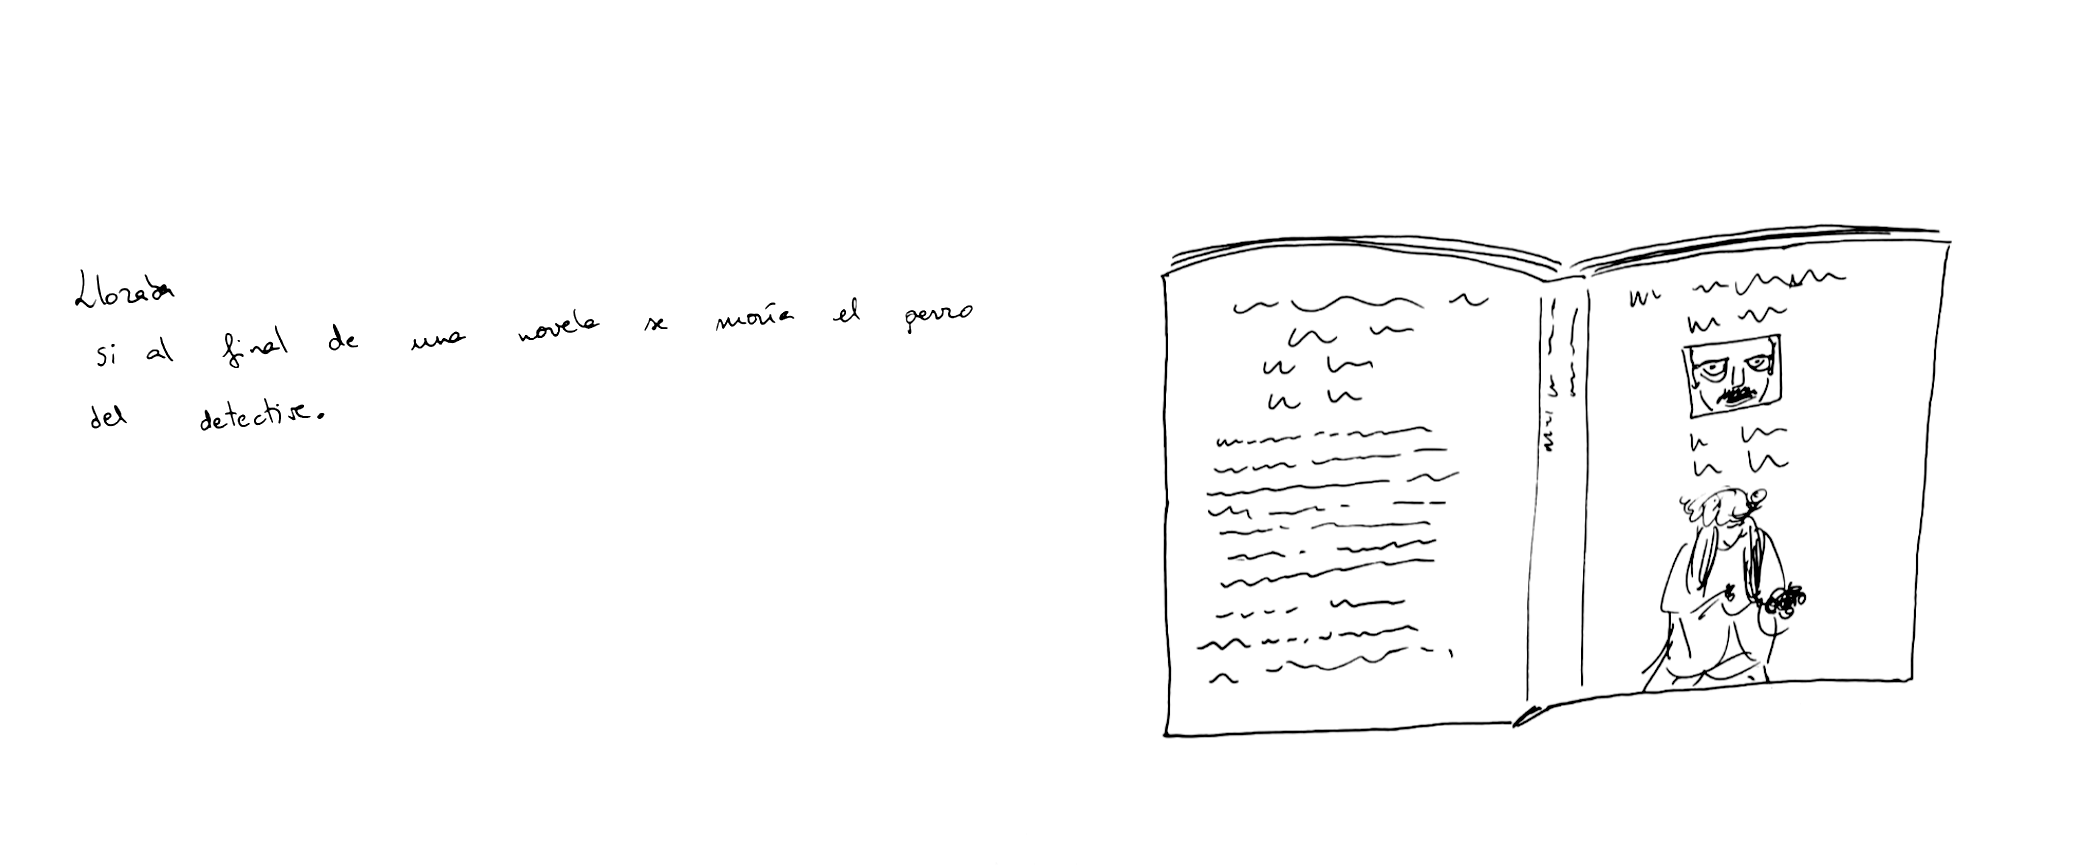 Lloraba
si al final de una novela se moría el perro
del detective.